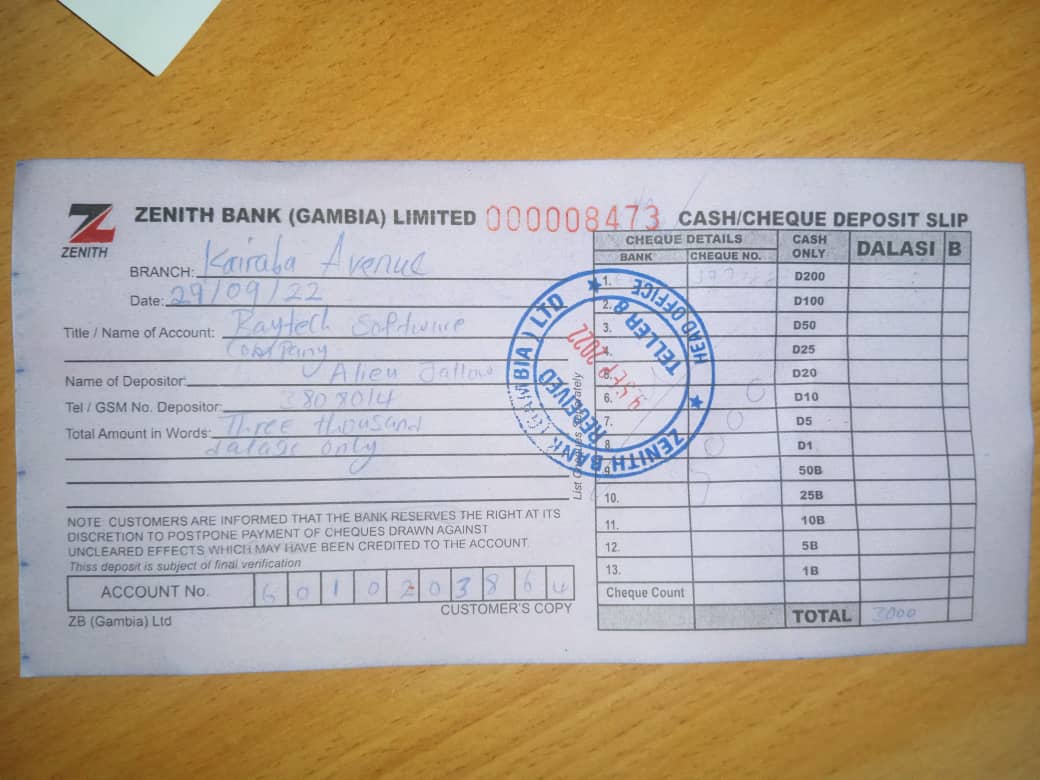 ZENITH
ZENITH BANK (GAMBIA) LIMITED 000008473 CASH/CHEQUE DEPOSIT SLIP
BRANCH: Kairaba Avenue
Date: 29/09/22
Title / Name of Account: Raytech Software
Company
Name of Depositor: Alieu Jallow
Tel / GSM No. Depositor: 3808014
Total Amount in Words: Three thousand
only
NOTE: CUSTOMERS ARE INFORMED THAT THE BANK RESERVES THE RIGHT AT ITS
DISCRETION TO POSTPONE PAYMENT OF CHEQUES DRAWN AGAINST
UNCLEARED EFFECTS WHICH MAY HAVE BEEN CREDITED TO THE ACCOUNT.
Thiss deposit is subject of final verification
ACCOUNT No. 6010203864
CUSTOMER'S COPY
ZB (Gambia) Ltd
CHEQUE DETAILS CASH ONLY DALASI B
BANK CHEQUE NO.
1. D200
2. D100
3. D50
4. D25
5. D20
6. D10
7. D5
8. D1
9. 50B
10. 25B
11. 10B
12. 5B
13. 1B
Cheque Count
TOTAL 3000
ZENITH BANK (GAMBIA) LTD
HEAD OFFICE
TELLER 8
SEP 2022
RECEIVED